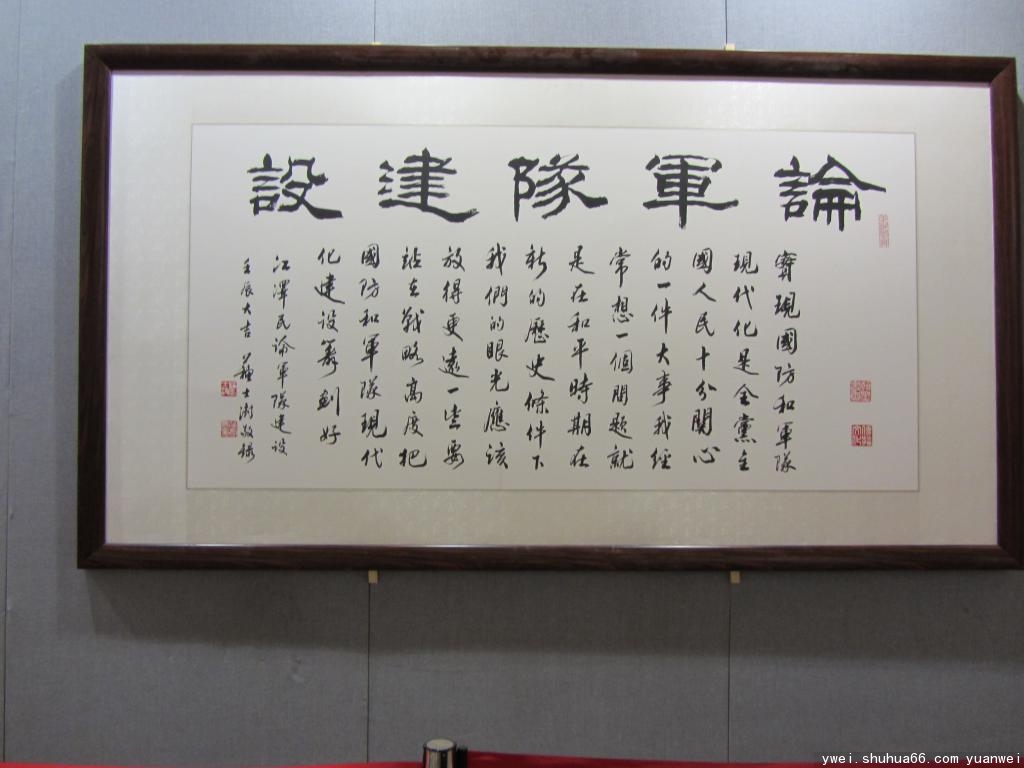 論軍隊建設
實現國防和軍隊
現代化是全黨全
國人民十分関心
的一件大事我經
常想一個問題就
是在和平時期在
新的歷史條件下
我們的眼光應該
放得更遠一些要
站在戰略高度把
國防和軍隊現代
化建设筹划好
江澤民论軍隊建设
壬辰大吉 蘇士澍敬録
ywei.shuhua66.com yuanwei